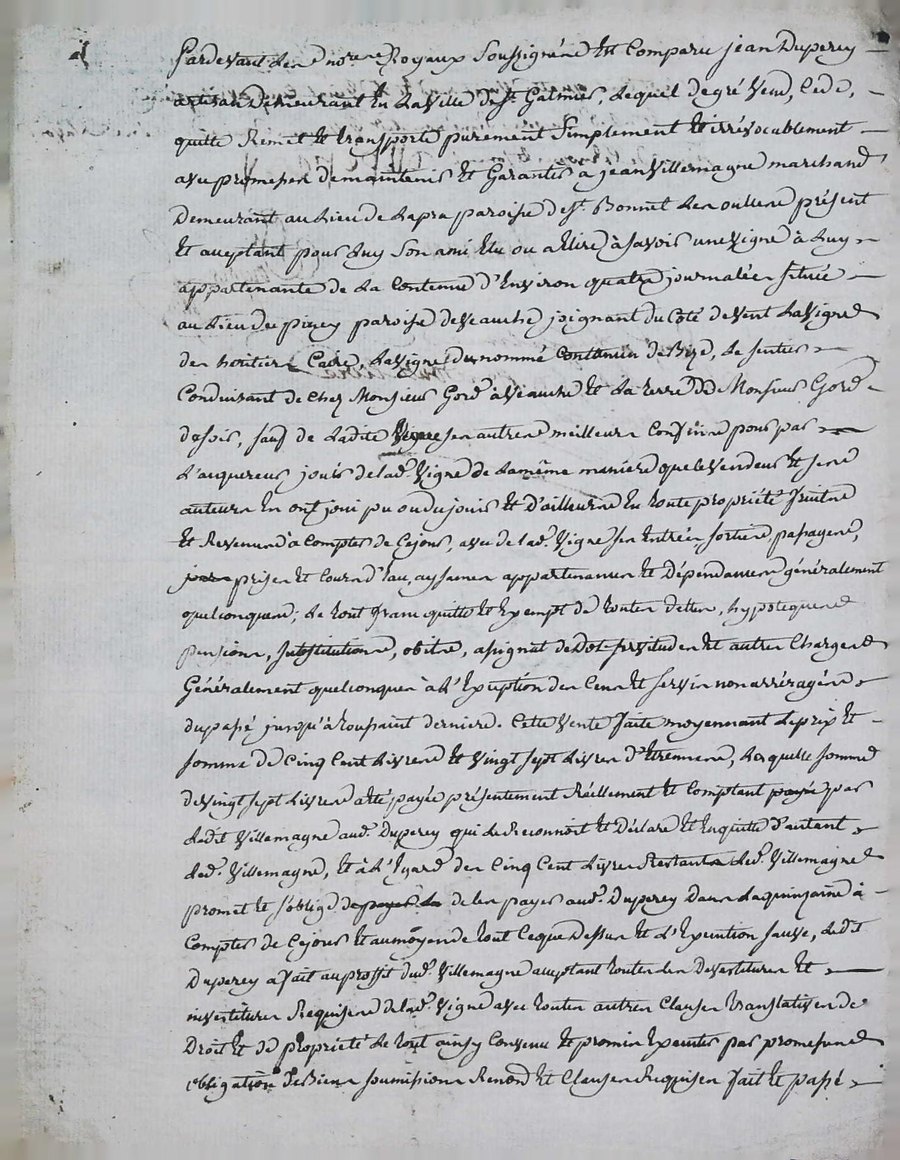 Pardevant Les no.res Royaux Soussignés Est Comparu jean Duperey
artisan Demeurant En La Ville de St. Galmier, Lequel de gré Vend, Cede,
quitte Remet Et transporte purement Simplement Et irrévocablement
avec promesses de maintenir Et Garantir à jean Villemagne marchand
Demeurant au Lieu de Lapra paroisse de St. Bonnet Les oulles présent
Et acceptant pour Luy Son ami Elu ou a Elire à Savoir une Vigne à Luy
appartenante de La Contenue d'Environ quatre journalées Située
au Lieu des piney paroisse de Veauche joignant du Coté de Vent La Vigne
des héritiers Caire, La Vigne du nommé de Bize, Le Sentier
Conduisant de Chez Monsieur Gord à Veauche Et La terre de Monsieur Gord
de Soir, Sauf de Ladite Vigne Ses autres meilleurs Confins pour par
L'acquereur jouir de lad. Vigne de La même maniere que le Vendeur Et Ses
auteurs En ont joui pu ou du jouir Et D'ailleurs En toute propriété fruits
Et Revenus à Compter de Ce jour, avec de lad. Vigne Ses Entrées Sorties, passages,
prises Et Cours d'Eau, aysances appartenances Et Dépendances généralement
quelconques; Le tout franc quitte Et Exempt de toutes dettes, hypoteques
pensions, Substitutions, obits, assignat de Dot Servitudes Et autres Charges
Généralement quelconques à L'Exception des Cens Et Servis non arréragés
du passé jusqu'à toussaint dernier. Cette Vente faite moyennant Le prix Et
Somme de Cinq Cent Livres Et Vingt Sept Livres d'Etrennes, Laquelle Somme
de Vingt Sept Livres a été payée présentement Réellement Et Comptant payée par
Ledit Villemagne aud. Duperey qui Le Reconnoit Et Déclare Et En quitte d'autant
Led. Villemagne, Et à L'Egard des Cinq Cent Livres Restantes Led. Villemagne
promet Et S'oblige de payer de les payer aud. Duperey Dans La quinzaine à
Compter de Ce jour Et au moyen de tout Ce que Dessus Et L'Execution Sauve, Ledit
Duperey a fait au proffit dud. Villemagne acceptant toutes Les Devestitures Et
investitures Requises de lad. Vigne avec toutes autres Clauses translatives de
Droit Et de propriété Le tout ainsy Convenu Et promis Executer par promesses
obligation de Biens Soumissions Renond. Et Clauses Requises fait Et passé